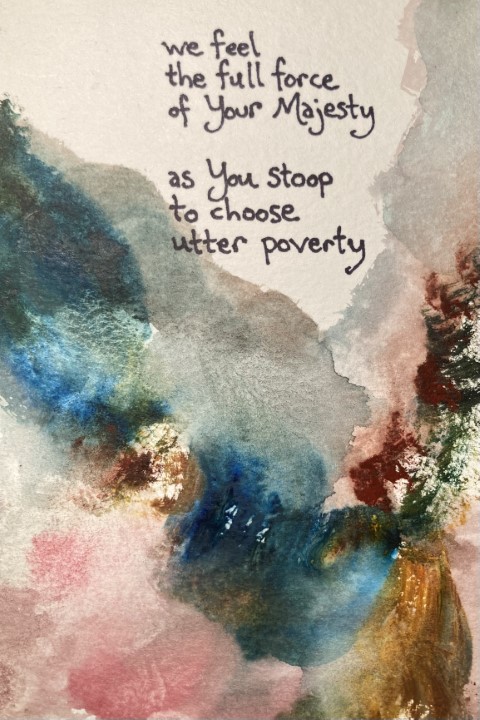 we feel
the full force
of Your Majesty
as You stoop
to choose
utter poverty